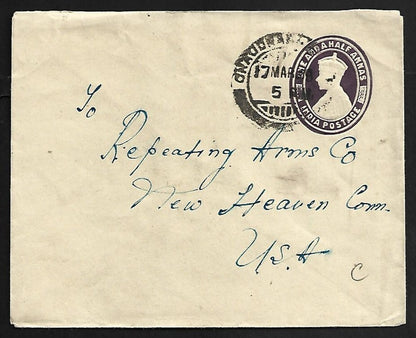 17 MAR
5
ONE AND A HALF ANNAS
INDIA POSTAGE
To
Repeating Arms Co
New Heaven Conn.
U.S.A
C